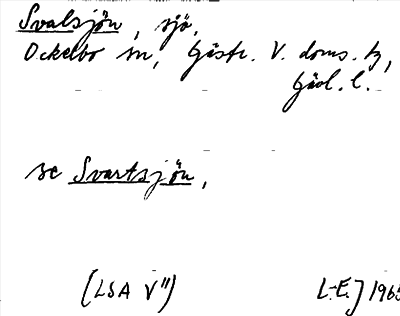 Svalsjön, sjö,
Ockelbo sn, Gästr. V. doms. tg,
Gävl. l.
se Svartsjön,
(LSA V")
L-E.J 1965